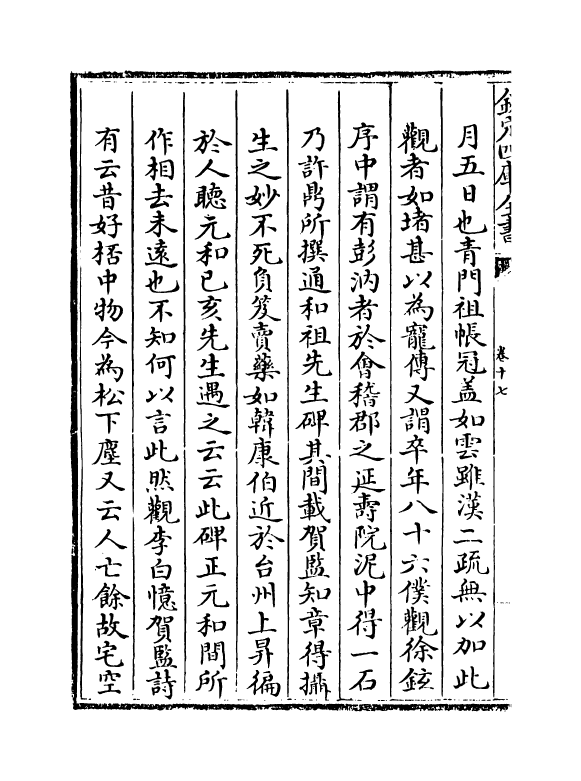 欽定四庫全書
卷十七
月五日也青門祖帳冠盖如雲雖漢二疏無以加此
觀者如堵甚以為寵傳又謂卒年八十六僕觀徐鉉
序中謂有彭汭者於㑹稽郡之延壽院泥中得一石
乃許鼎所撰通和祖先生碑其間載賀監知章得攝
生之妙不死負笈賣藥如韓康伯近於台州上昇徧
於人聽元和己亥先生遇之云云此碑正元和間所
作相去未逺也不知何以言此然觀李白憶賀監詩
有云昔好桮中物今為松下塵又云人亡餘故宅空